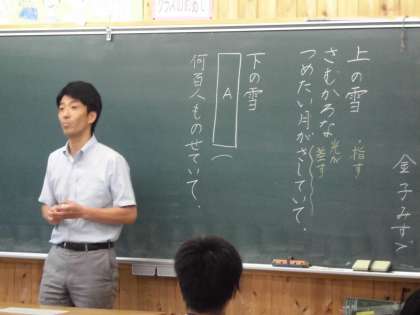 金子みすゞ
上の雪
さむかろな
つめたい月がさしていて。
・指す
光が
差す
下の雪
A
何百人ものせていて。